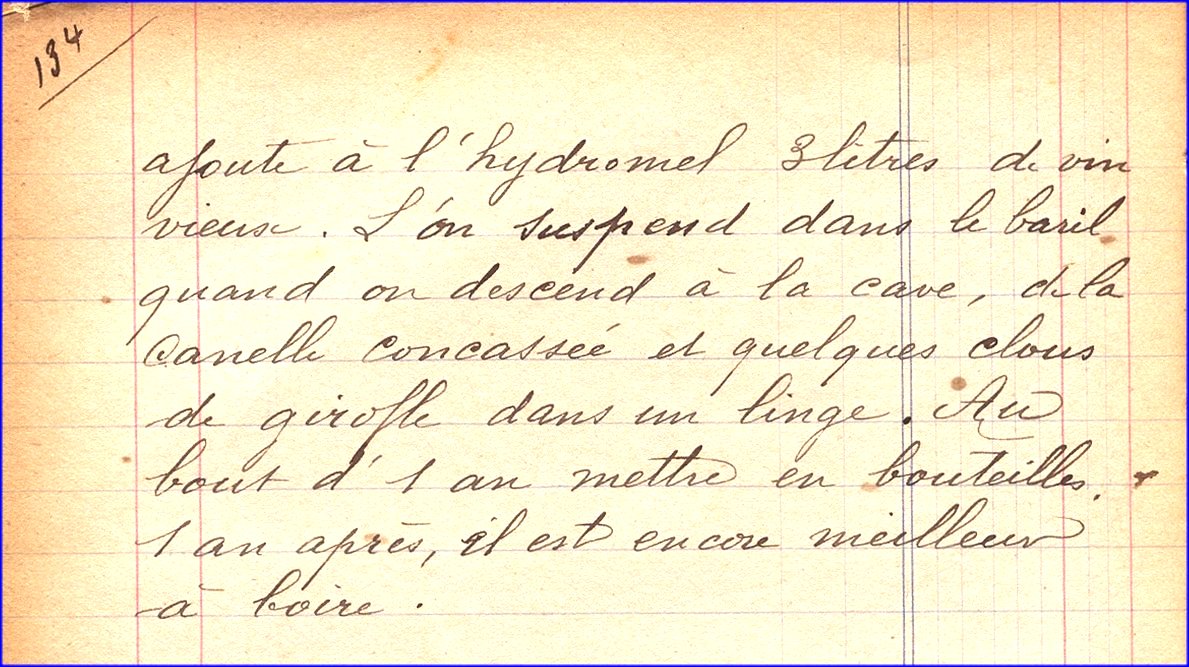 134
ajoute à l'hydromel 3 litres de vin
vieux. L'on suspend dans le baril
quand on descend à la cave, de la
canelle concassée et quelques clous
de girofle dans un linge. Au
bout d'1 an mettre en bouteilles.
1 an après, il est encore meilleur
à boire.